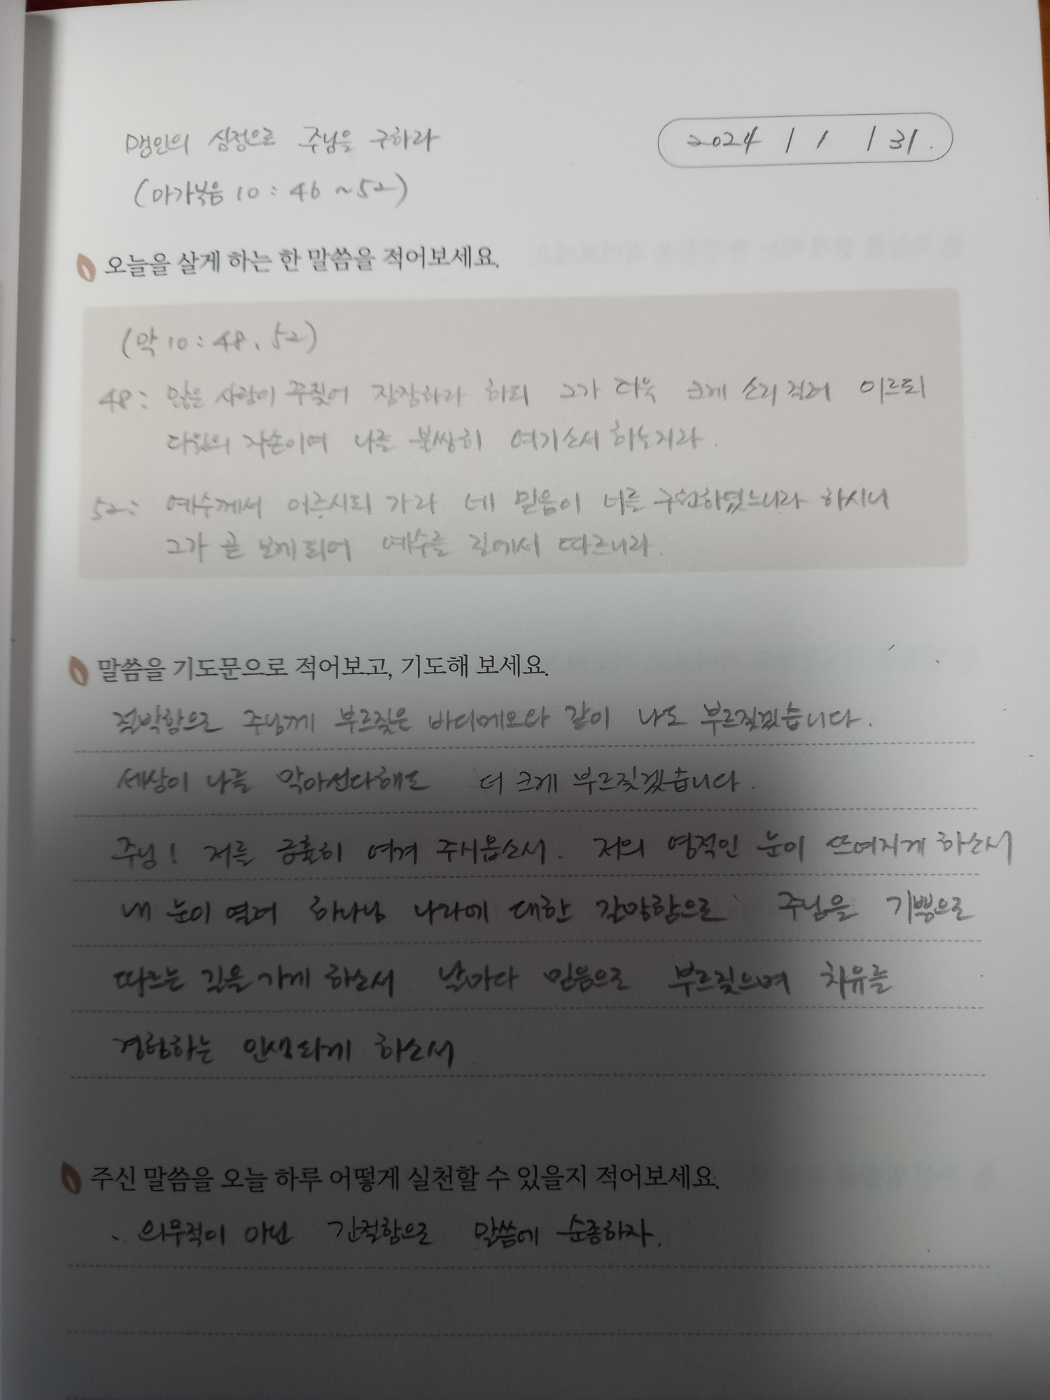 맹인의 심정으로 주님을 구하라
2024 / 1 / 31.
(마가복음 10 : 46 ~ 52)
오늘을 살게 하는 한 말씀을 적어보세요.
(막 10 : 48, 52)
48 : 많은 사람이 꾸짖어 잠잠하라 하되 그가 더욱 크게 소리 질러 이르되
다윗의 자손이여 나를 불쌍히 여기소서 하는지라.
52 : 예수께서 이르시되 가라 네 믿음이 너를 구원하였느니라 하시니
그가 곧 보게 되어 예수를 길에서 따르니라.
말씀을 기도문으로 적어보고, 기도해 보세요.
절박함으로 주님께 부르짖은 바디메오와 같이 나도 부르짖겠습니다.
세상이 나를 막아선다해도 더 크게 부르짖겠습니다.
주님! 저를 긍휼히 여겨 주시옵소서. 저의 영적인 눈이 뜨여지게 하소서
내 눈이 열려 하나님 나라에 대한 갈망함으로 주님을 기쁨으로
따르는 길을 가게 하소서 날마다 믿음으로 부르짖으며 치유를
경험하는 인생되게 하소서
주신 말씀을 오늘 하루 어떻게 실천할 수 있을지 적어보세요.
의무적이 아닌 간절함으로 말씀에 순종하자.